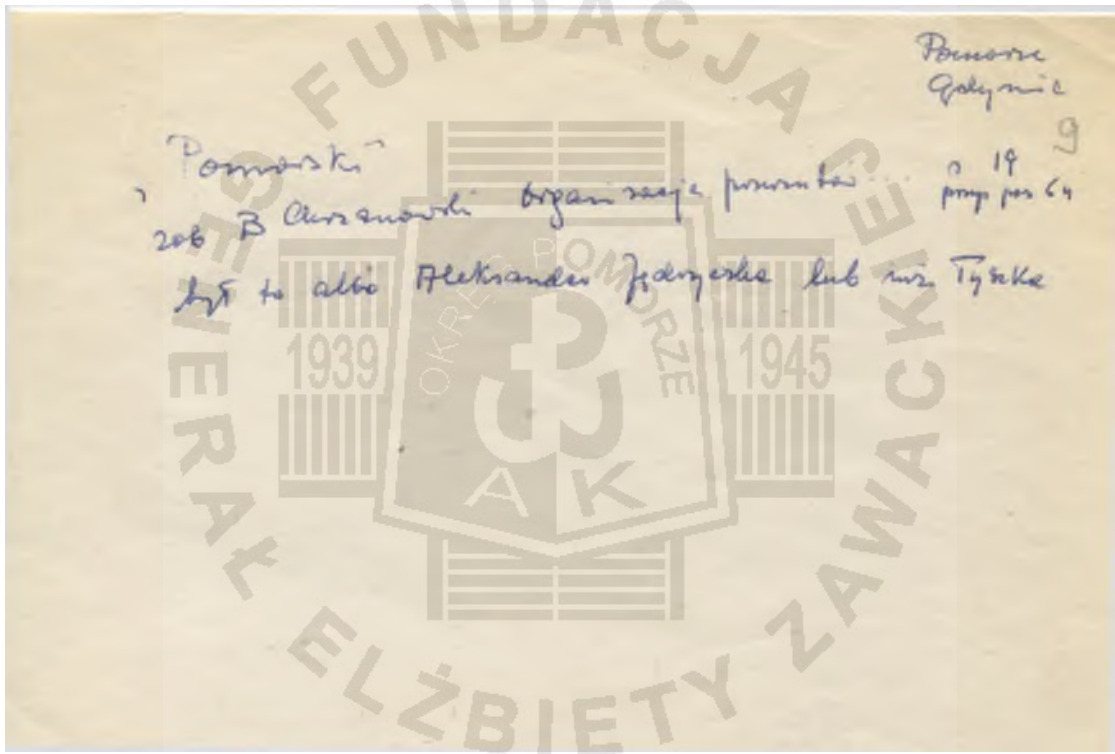 Pomorze
Gdynia
9
"Pomorski"
zob B Chrzanowski Organizacja ... s 19
przyp poz 64
był to albo Aleksander Jędrzejka lub inż. Tyszka
FUNDACJA
GENERAŁ ELŻBIETY ZAWACKIEJ
OKRĘG POMORZE
1939
1945
AK